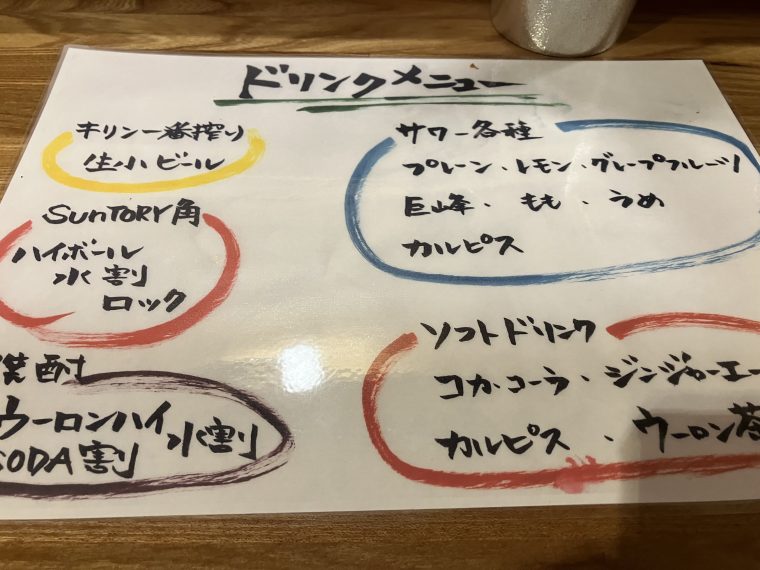 ドリンクメニュー
キリン一番搾り
生小ビール
SUNTORY角
ハイボール
水割
ロック
焼酎
ウーロンハイ 水割
SODA割
サワー各種
プレーン・レモン・グレープフルーツ
巨峰・もも・うめ
カルピス
ソフトドリンク
コカ・コーラ・ジンジャーエー
カルピス・ウーロン茶